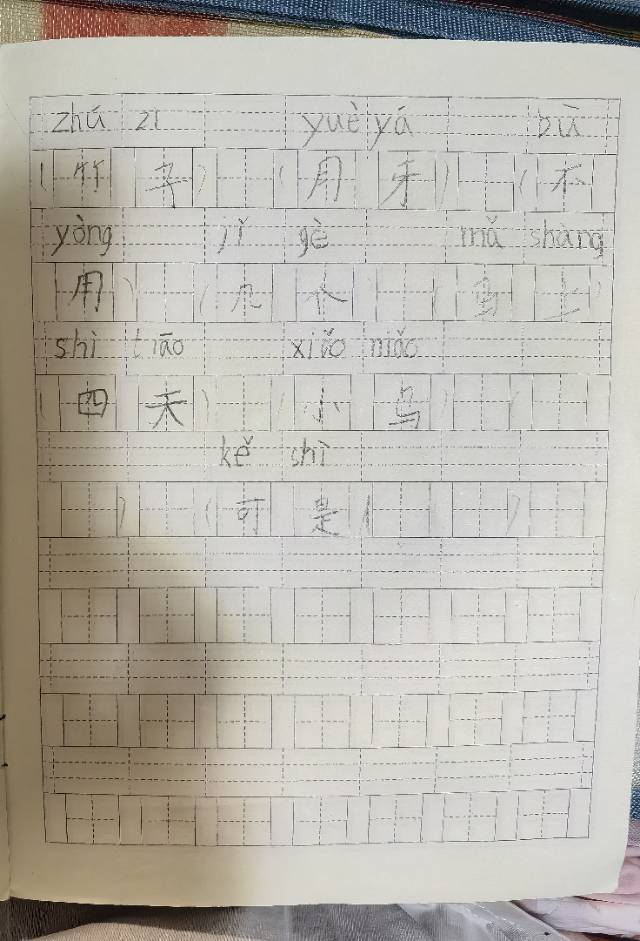 zhú zi yuè yá bù
(竹子) (用牙) (不
yòng jǐ gè mǎ shàng
用) (几个) (马上)
shì tiáo xiǎo niǎo
(四天) (小鸟) (
kě shì
) (可是 ( )